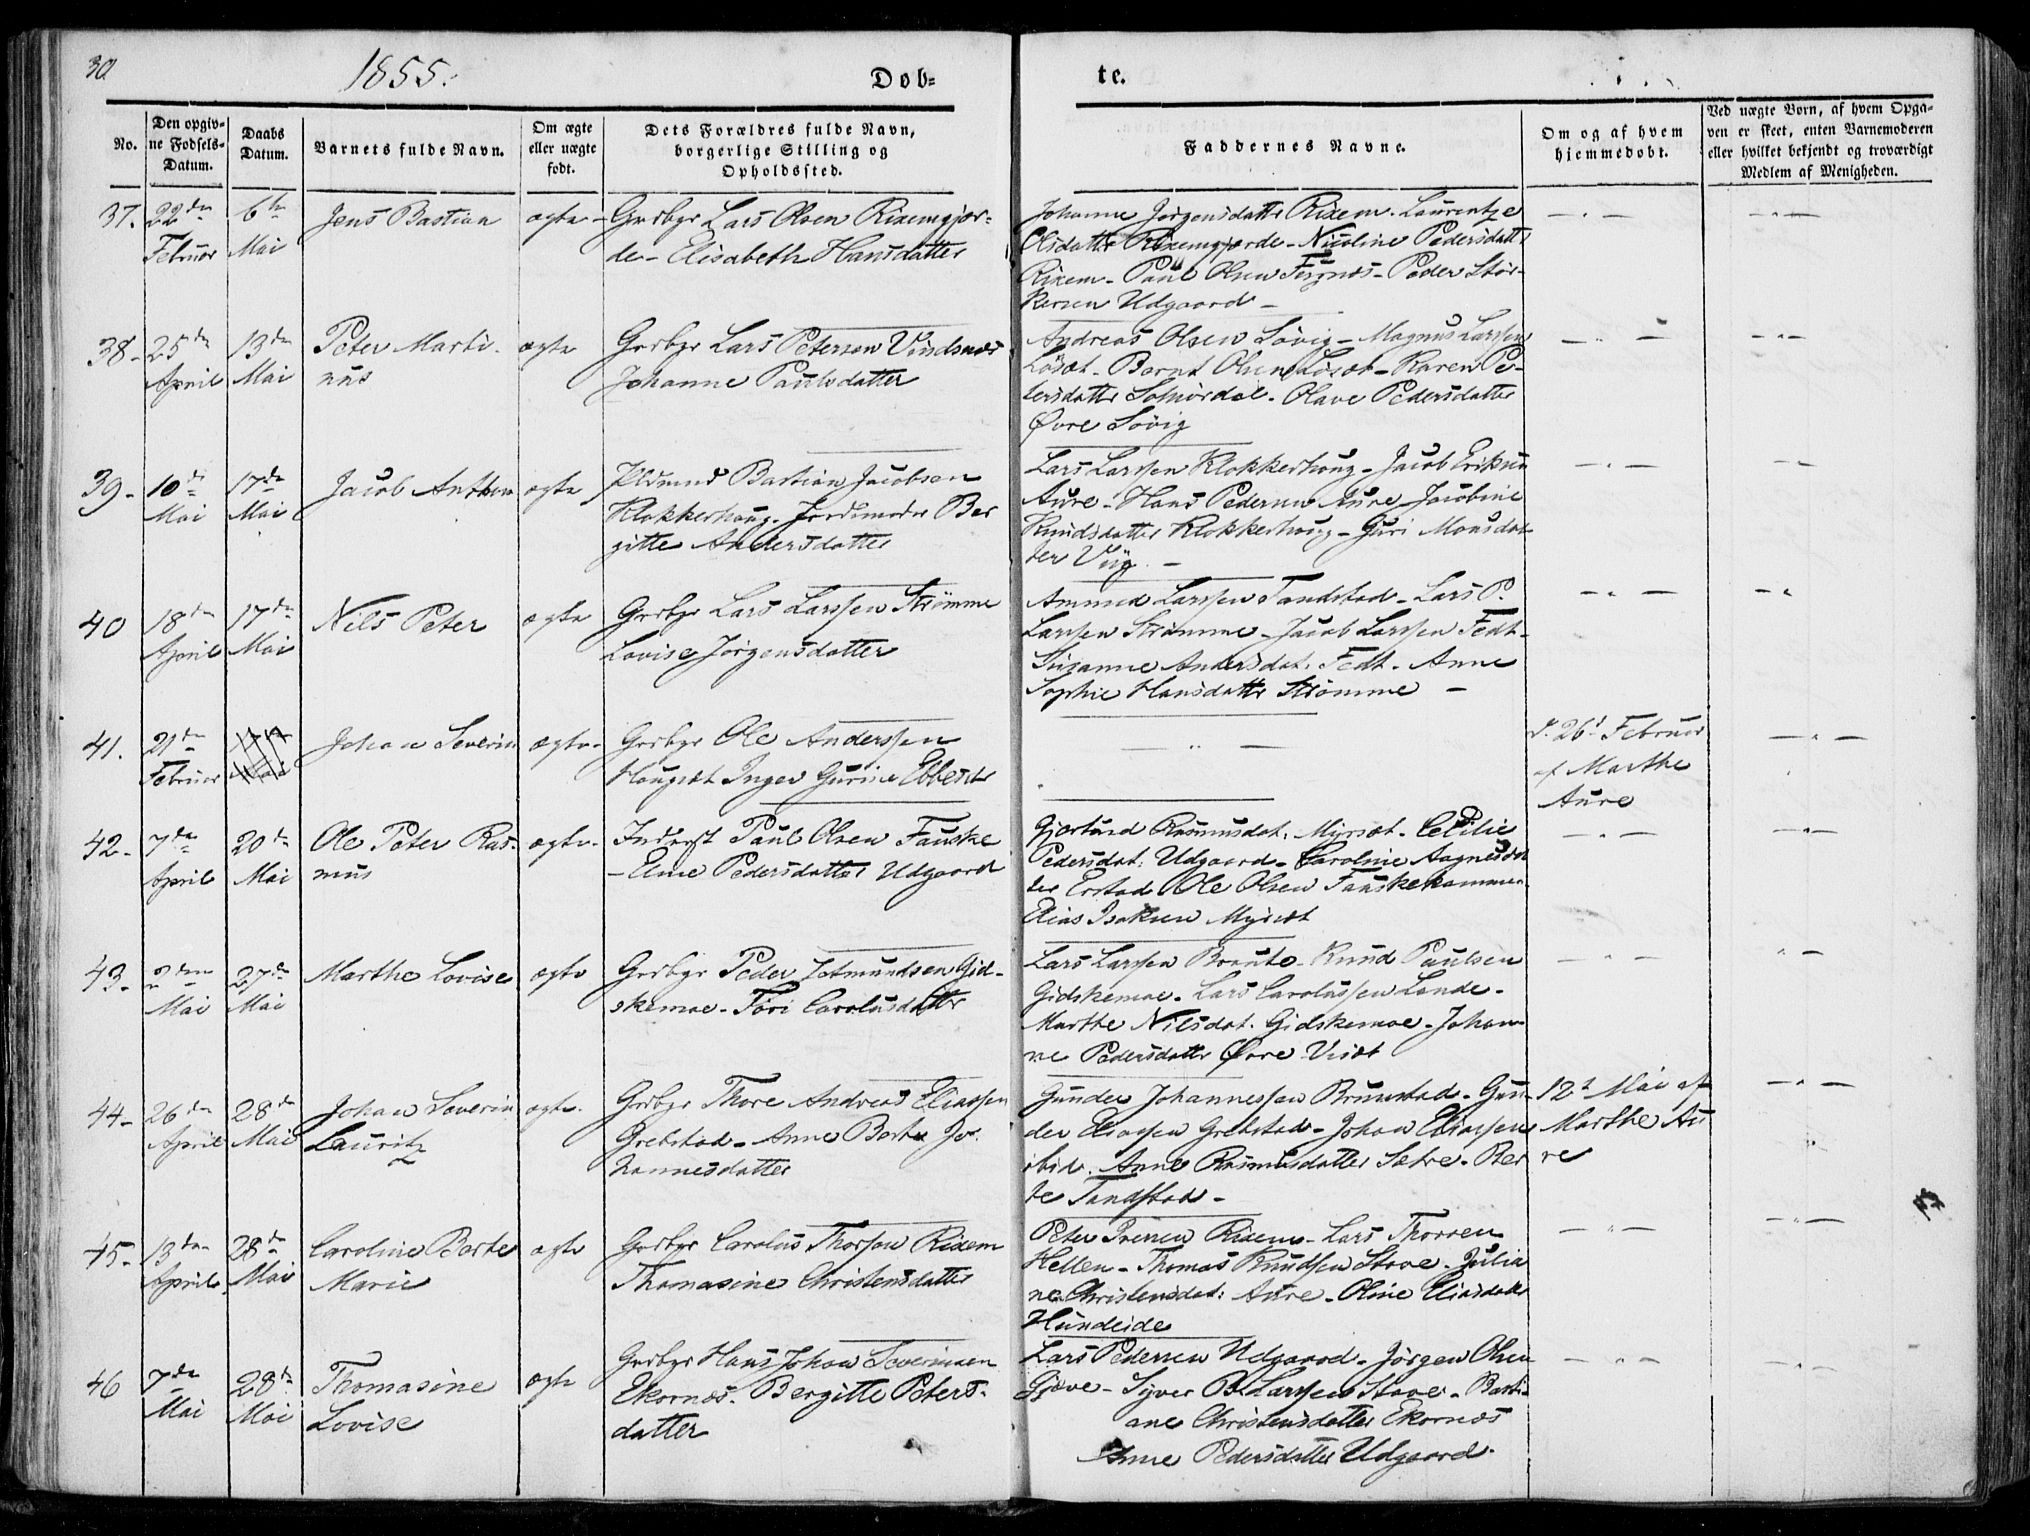 30
1855.
Døb=
te.
No.
Den opgiv=
ne Fødsels=
Datum.
Daabs
Datum.
Barnets fulde Navn.
Om ægte
eller uægte
født.
Dets Forældres fulde Navn,
borgerlige Stilling og
Opholdssted.
Faddernes Navne.
Om og af hvem
hjemmedøbt.
Ved uægte Børn, af hvem Opga=
ven er skeet, enten Barnemoderen
eller hvilket bekjendt og troværdigt
Medlem af Menigheden.
37. 22de Februar
6te Mai
Jens Bastian
ægte
Grdbgr Lars Olsen Rixemgjær=
de - Elisabeth Hansdatter
Johanne Jørgensdatter Rixem. Laurentze
Olsdatter Rixemgjærde - Nicoline Pedersdatter
Rixem - Paul Olsen - Peder Stør-
kersen Udgaard -
38- 25de April
13de Mai
Peter Marti-
nus
ægte
Grdbgr Lars Petersen Vindsnæs
Johanne Paulsdatter
Andreas Olsen Løvig - Magnus Larssen
Løset - Bernt Olsen Løset - Karen Pe-
tersdatter - Olave Pedersdatter
Øvre Løvig
39- 10de Mai
17de Mai
Jacob Anthon
ægte
Pldsmd Bastian Jacobsen
Klokkerhoug. Jordemoder Ber
gitte Andersdatter
Lars Larssen Klokkerhoug - Jacob Eriksen
Aure - Hans Pedersen Aure - Jacobine
Knudsdatter Klokkerhoug - Guri Monsdat
ter Viig. -
40 18de April
17de Mai
Nils Peter
ægte
Grdbgr Lars Larssen Strømme
Lovise Jørgensdatter
Ammund Larssen Tandstad - Lars P.
Larssen Strømme - Jacob Larssen Fedt -
Susanne Andersdat. Fedt - Anne
Sophie Hansdatter Strømme -
41. 21de Februar
17de Mai
Johan Severin
ægte-
Grdbgr Ole Anderssen
Hougset Inger Gurine
d. 26d Februar
af Marthe
Aure
42- 7de April
20de Mai
Ole Peter Ras-
mus
ægte-
Inderst Paul Olsen Fauske
- Eline Pedersdatter Udgaard
Gjertrud Rasmusdat. Myrset. Cecilie
Pedersdat: Udgaard - Caroline Aagnesdat
ter Erstad Ole Olsen Fauskekammen
Elias Isaksen Myrset
43- 2den Mai
27de Mai
Marthe Lovise
ægte
Grdbgr Peder Gid-
skemoe - Carolusdatter
Lars Larssen Braute - Knud Paulsen
Gidskemoe - Lars Carolussen Lande -
Marthe Nilsdat. Gidskemoe - Johan-
ne Pedersdatter Øvre Viset
44- 26de April
28de Mai
Johan Severin
Lauritz
ægte.
Grdbgr Thore Andreas Eliassen
Grebstad - Anne Berte Jo-
hannesdatter
Gunder Johannessen Brunstad - Gun-
der Eliassen Grebstad - Johan Eliassen
ibid. Anne Rasmusdatter Sætre - Ber
te Tandstad -
12t Mai af
Marthe Au
re
45- 13de April
28de Mai
Caroline Berte
Marie
ægte
Grdbgr Carolus Thorsen Rixem
Thomasine Christensdatter
Peter Iversen Rixem - Lars Thorsen
Hellen - Thomas Knudsen Stave - Julia
ne Christensdat: Aure - Oline Eliasdatter
Hundeide
46 7de Mai
28de Mai
Thomasine
Lovise
ægte
Grdbgr Hans Johan Severinsen
Ekornæs - Bergitte Peters-
datter
Lars Pedersen Udgaard - Jørgen Olsen
Gjøve - Syver B. Larssen Stave - Basti-
ane Christensdatter Ekornæs
Anne Pedersdatter Udgaard.